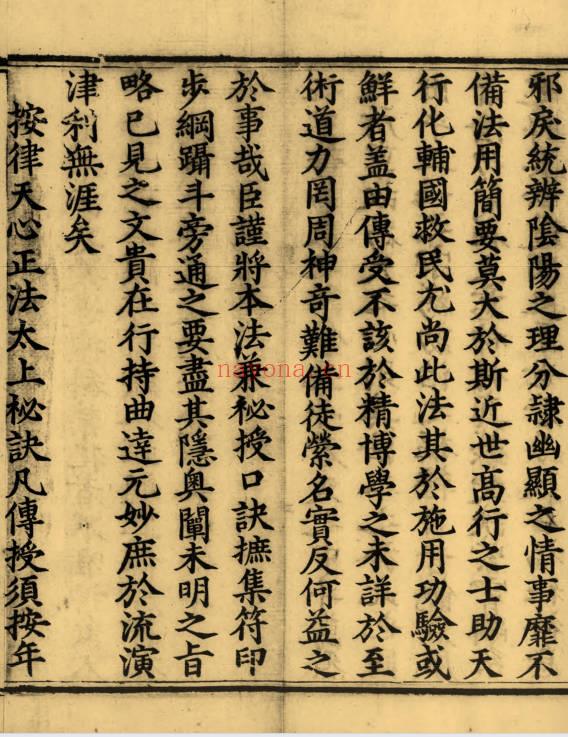 邪戾統辨陰陽之理分隷幽顯之情事靡不
備法用簡要莫大於斯近世高行之士助天
行化輔國救民尤尚此法其於施用功驗或
鮮者盖由傳受不該於精博學之未詳於至
術道力罔周神奇難備徒縈名實反何益之
於事哉臣謹將本法兼秘授口訣摭集符印
步綱躡斗旁通之要盡其隱奥闡未明之旨
略已見之文貴在行持曲達元妙庶於流演
津利無涯矣
按律天心正法太上秘訣凡傳授須按年
nayona.cn